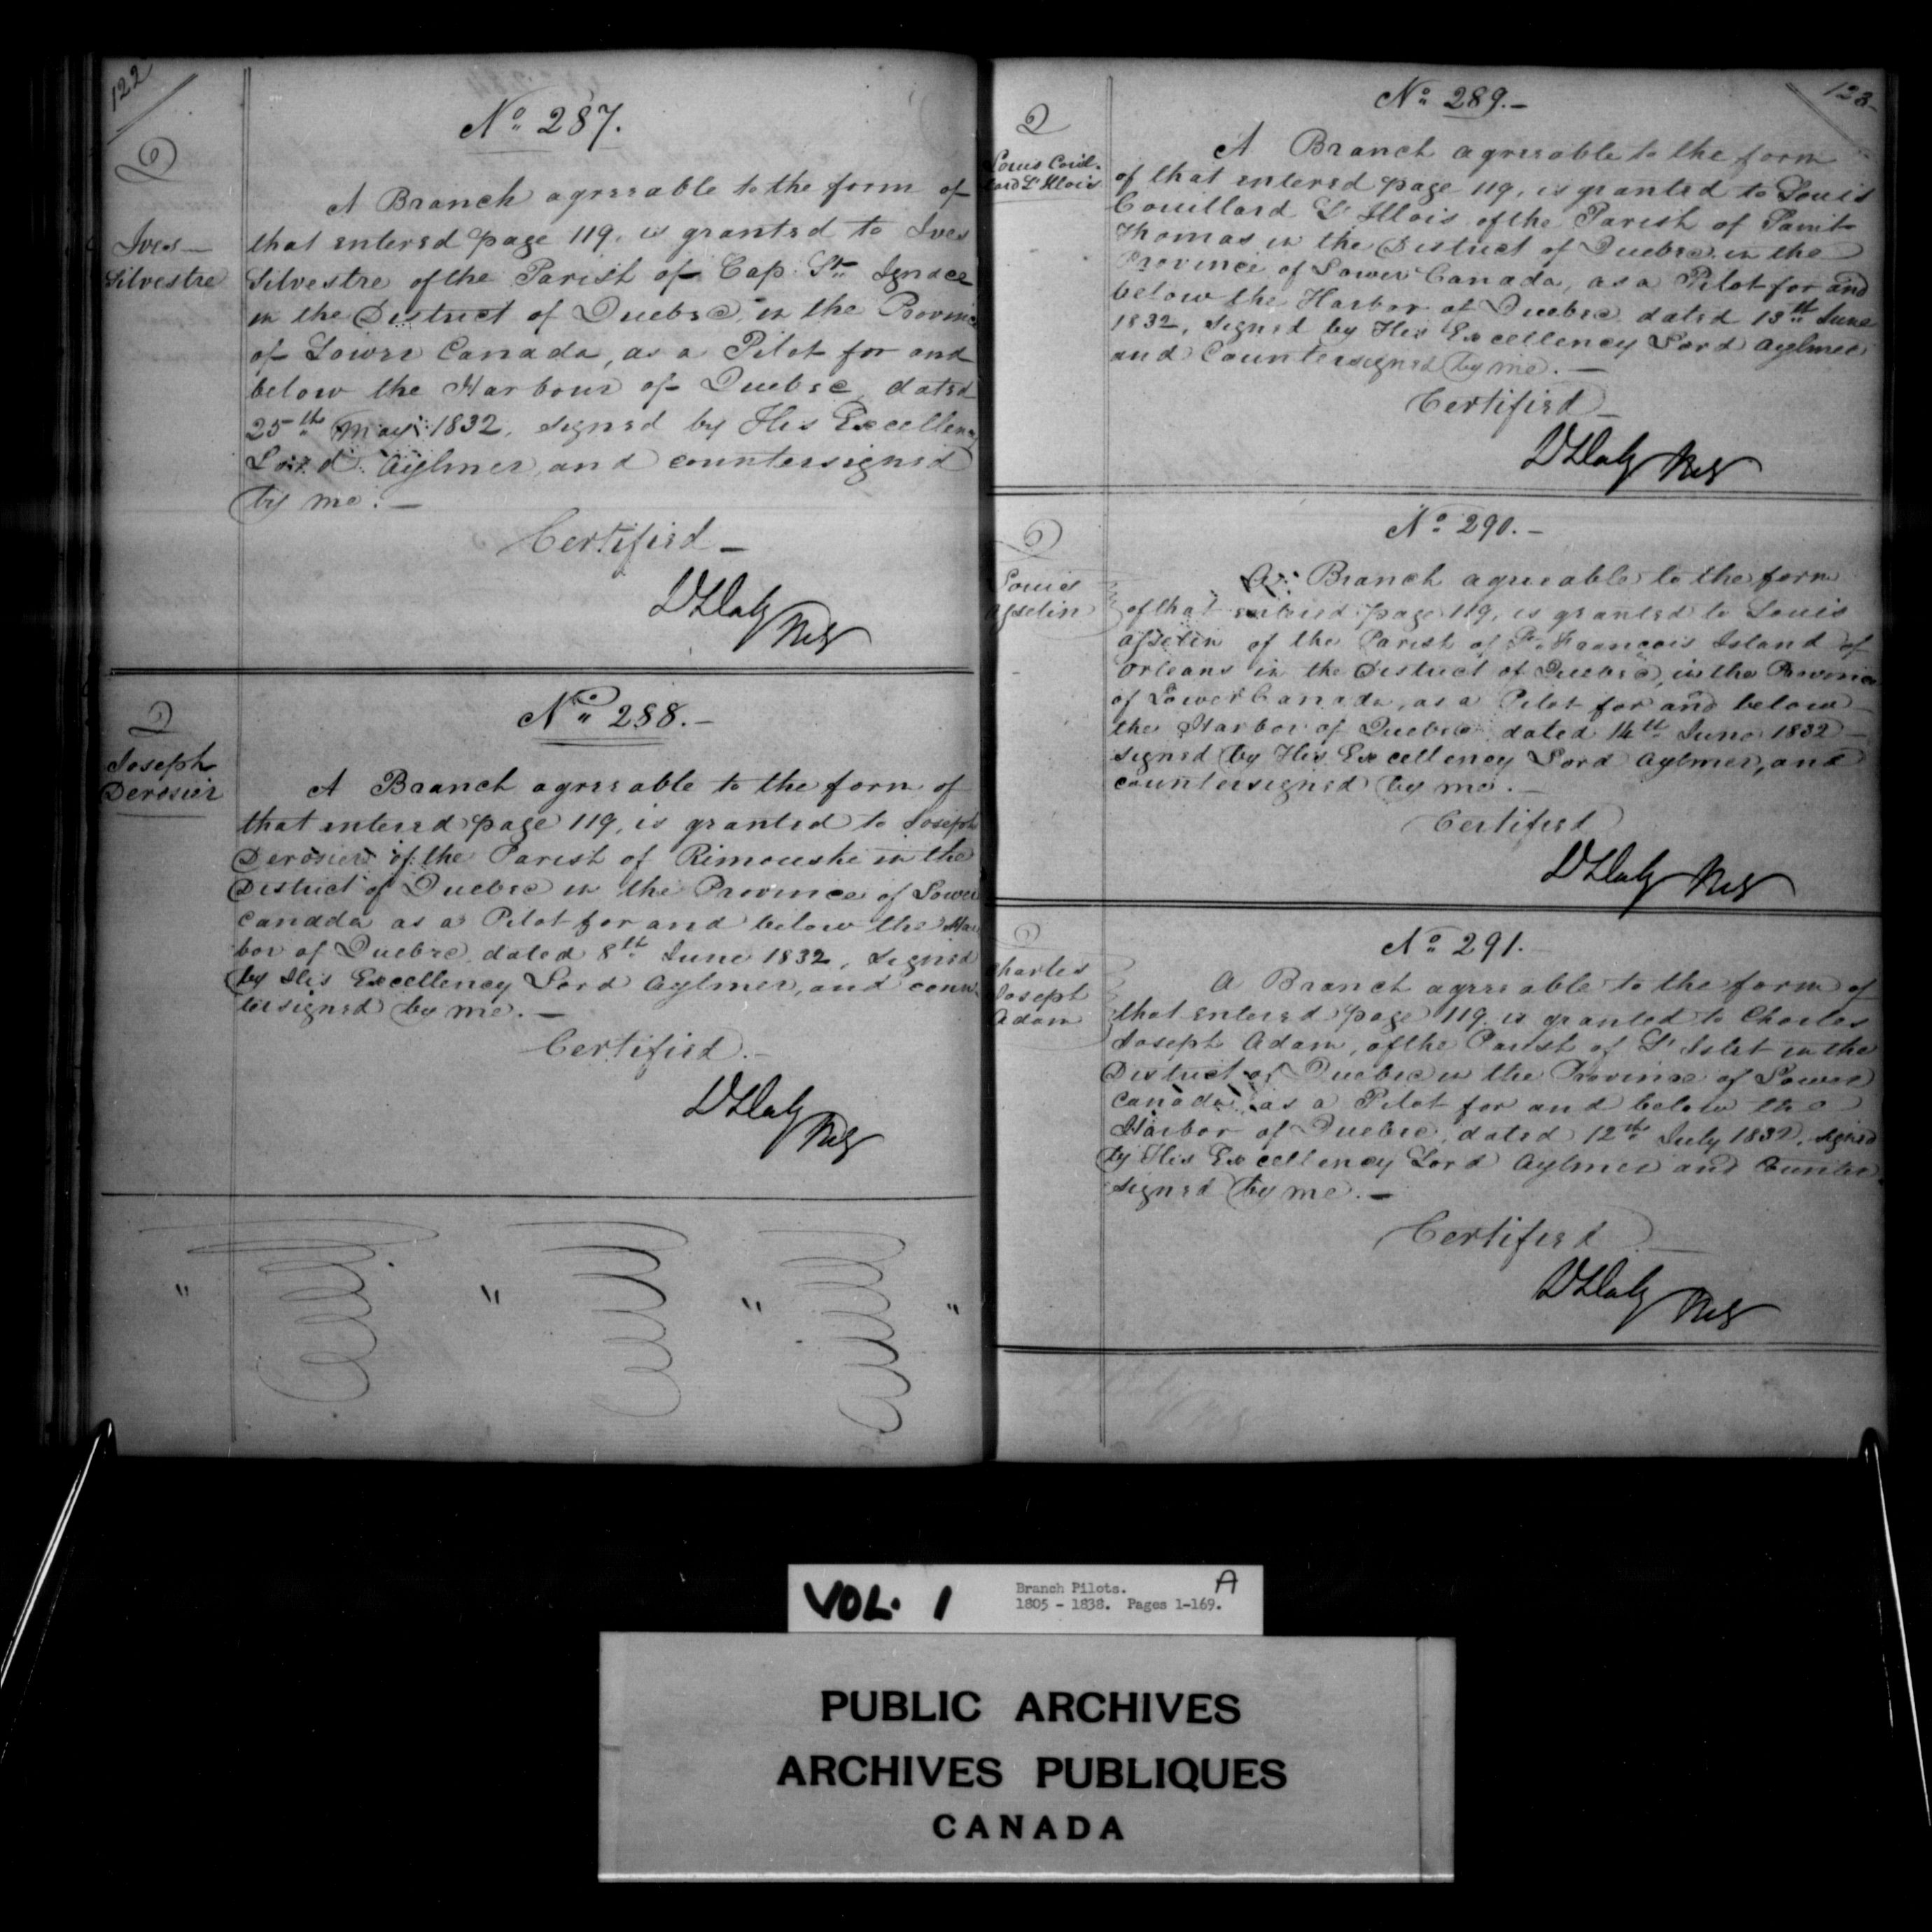 122
Nº 287.
Ives
Silvestre
A Branch agreeable to the form of
that entered page 119, is granted to Ives
Silvestre of the Parish of Cap St Ignace
in the District of Quebec, in the Province
of Lower Canada, as a Pilot for and
below the Harbour of Quebec, dated
25th May 1832, signed by His Excellency
Lord Aylmer, and countersigned
by me. —
Certified —
D Daly
Nº 288. —
Joseph
Derosier
A Branch agreeable to the form of
that entered page 119, is granted to Joseph
Derosier of the Parish of Rimouski in the
District of Quebec in the Province of Lower
Canada as a Pilot for and below the Har
bor of Quebec, dated 8th June 1832, signed
by His Excellency Lord Aylmer, and coun-
tersigned by me. —
Certified. —
D Daly
" " " "
123
Nº 289. —
Louis Couil-
lard L'Illois
A Branch agreeable to the form
of that entered page 119, is granted to Louis
Couillard L'Illois of the Parish of Saint
Thomas in the District of Quebec in the
Province of Lower Canada, as a Pilot for and
below the Harbor of Quebec dated 13th June
1832, signed by His Excellency Lord Aylmer
and Countersigned by me. —
Certified —
D Daly
Nº 290. —
Louis
Asselin
A Branch agreeable to the form
of that entered page 119, is granted to Louis
Asselin of the Parish of St François Island of
Orleans in the District of Quebec, in the Province
of Lower Canada, as a Pilot for and below
the Harbor of Quebec dated 14th June 1832 —
signed by His Excellency Lord Aylmer, and
countersigned by me. —
Certified
D Daly
Nº 291. —
Charles
Joseph
Adam
A Branch agreeable to the form of
that entered page 119 is granted to Charles
Joseph Adam, of the Parish of L'Islet in the
District of Quebec in the Province of Lower
Canada as a Pilot for and below the
Harbor of Quebec, dated 12th July 1832, signed
by His Excellency Lord Aylmer and Counter-
signed by me. —
Certified —
D Daly
VOL. 1
Branch Pilots. A
1805 - 1838. Pages 1-169.
PUBLIC ARCHIVES
ARCHIVES PUBLIQUES
CANADA